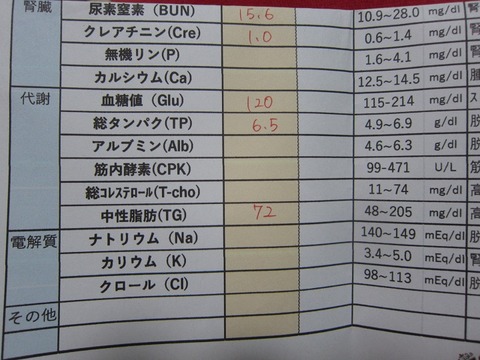 腎臓 尿素窒素 (BUN) 15.6 10.9~28.0 mg/dl 腎
クレアチニン(Cre) 1.0 0.6~1.4 mg/dl 腎
無機リン(P) 1.6~4.1 mg/dl 腎
カルシウム(Ca) 12.5~14.5 mg/dl 腫
代謝 血糖値 (Glu) 120 115-214 mg/dl ス
総タンパク(TP) 6.5 4.9~6.9 g/dl 脱
アルブミン(Alb) 4.6~6.3 g/dl 脱
筋内酵素(CPK) 99-471 U/L 筋
総ｺﾚｽﾃﾛｰﾙ(T-cho) 11~74 mg/dl 高
中性脂肪(TG) 72 48~205 mg/dl 高
電解質 ナトリウム (Na) 140~149 mEq/dl 脱
カリウム (K) 3.4~5.0 mEq/dl 腎
クロール (Cl) 98~113 mEq/dl 脱
その他